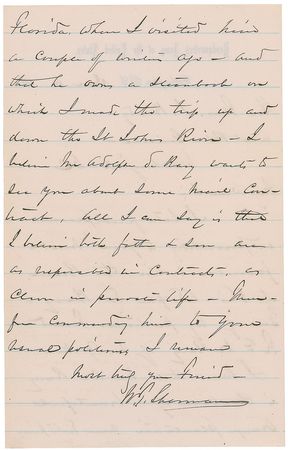 Florida, when I visited him
a couple of weeks ago – and
that he owns a Steamboat on
which I made the trip up and
down the St Johns River – I
believe Mr Adolph de Bary wants to
see you about some mail Con-
tract, All I can say is that
I believe both fath & son are
as responsible in Contracts, as
clever in private life – There-
fore Commending him to your
usual politeness I remain
Most truly your Friend –
W. T. Sherman